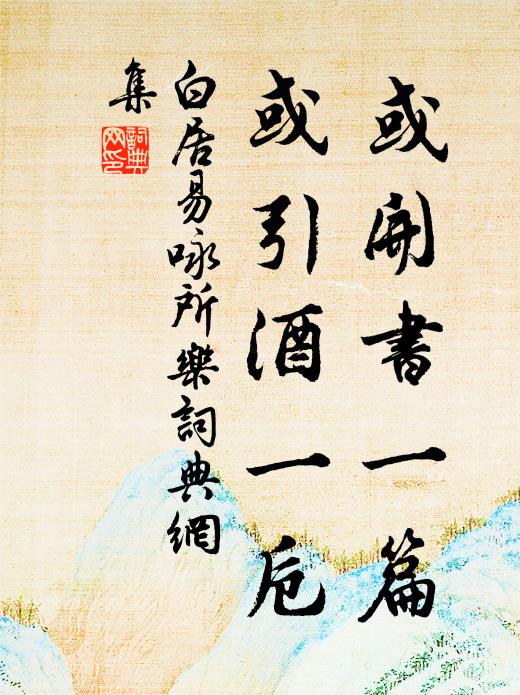 或開書一篇
或引酒一卮
白居易咏所樂詞典網
集
詞典網印